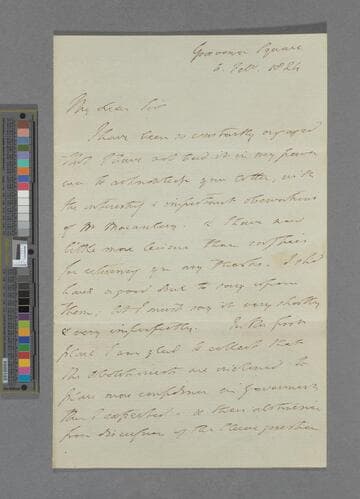 Grosvenor Square
6. Feb. 1824
My dear Sir
I have been so constantly engaged
that I have not had it in my power
even to acknowledge your letter, with
the interesting & important observations
of Mr Macaulay. & I have now
little more leisure than suffices
for returning you my thanks. I shd
have a good deal to say upon
them; but I must say it very shortly
& very imperfectly. In the first
place I am glad to collect that
the Abolitionists are inclined to
place more confidence in Government
than I expected - & their abstinence
from discussion of the question